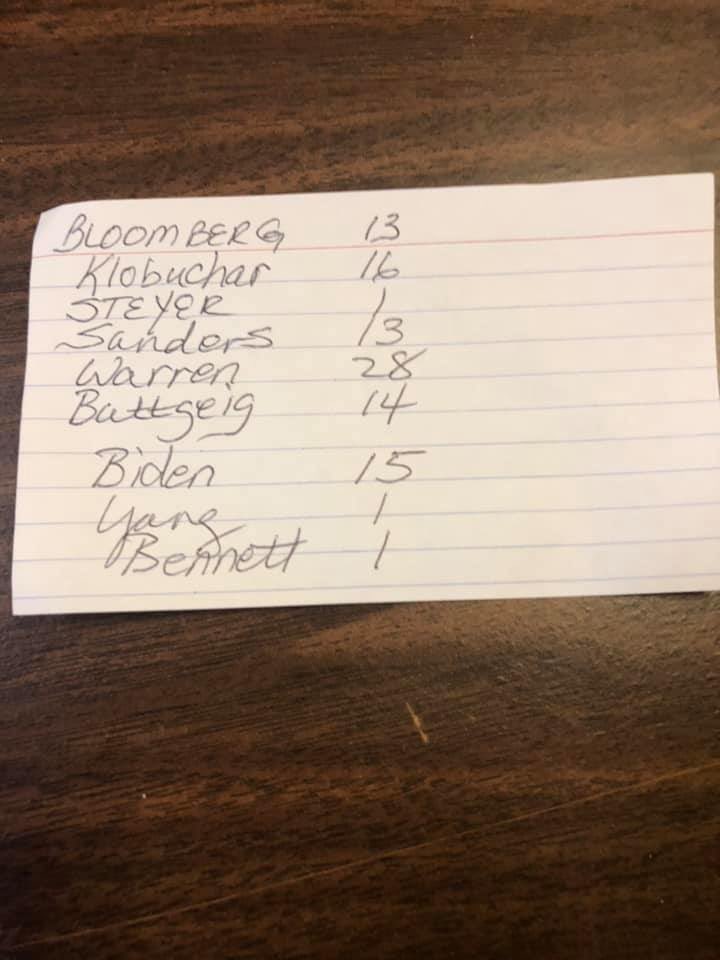 BLOOMBERG 13
Klobuchar 16
STEYER 1
Sanders 13
Warren 28
Buttgeig 14
Biden 15
Yang 1
Bennett 1